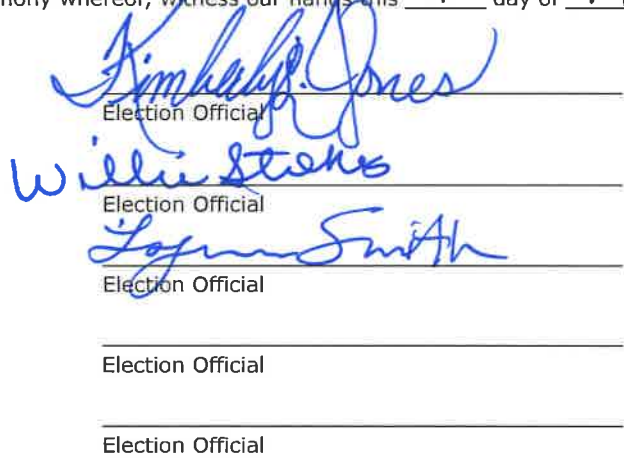 mony whereof, witness our hands this ___ day of ___
Kimberly J. Jones
Election Official
Willie Stokes
Election Official
Smith
Election Official
Election Official
Election Official